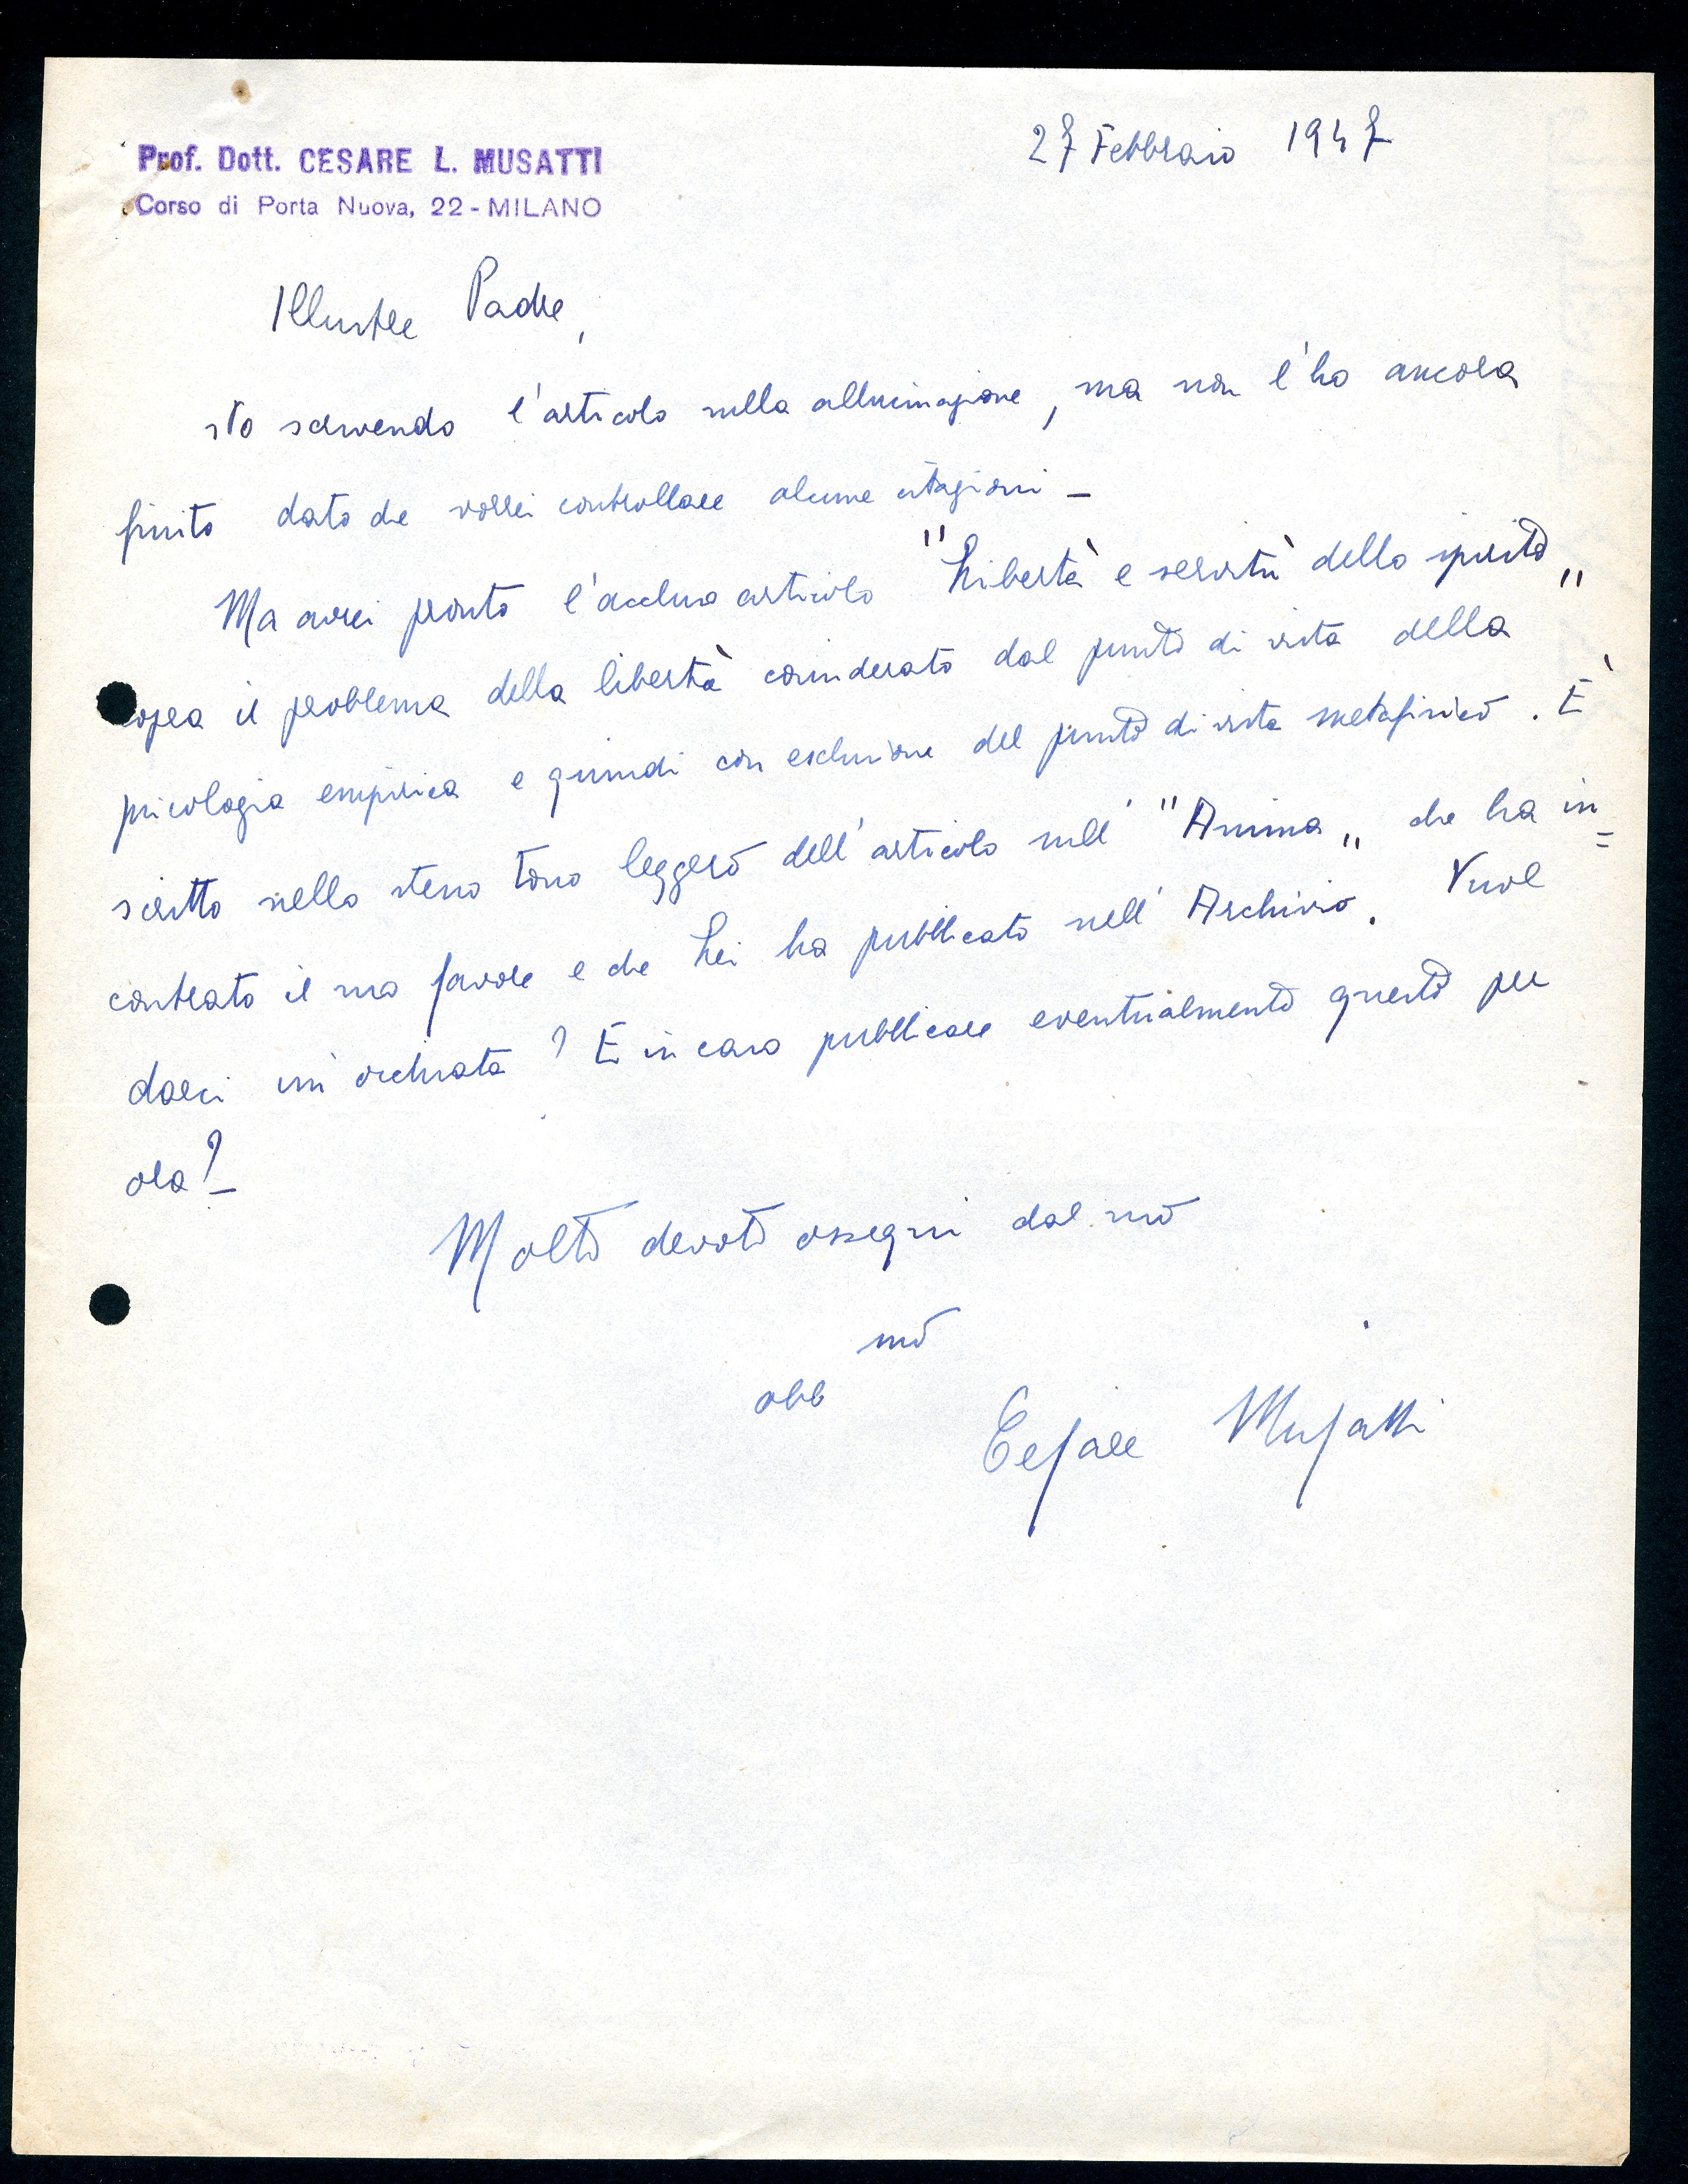 Prof. Dott. CESARE L. MUSATTI
Corso di Porta Nuova, 22 - MILANO
27 Febbraio 1947
Illustre Padre,
sto scrivendo l'articolo sulla allucinazione, ma non l'ho ancora
finito dato che vorrei controllare alcune citazioni –
Ma avrei pronto l'accluso articolo "Libertà e servitù dello spirito"
sopra il problema della libertà considerato dal punto di vista della
psicologia empirica e quindi con esclusione del punto di vista metafisico. È
scritto nello stesso tono leggero dell'articolo sull' "Anima" che ha in=
contrato il suo favore e che Lei ha pubblicato nell'Archivio. Vuol
darci un'occhiata? E in caso pubblicare eventualmente questo per
ora? –
Molto devoti ossequi dal suo
obb mo
Cesare Musatti